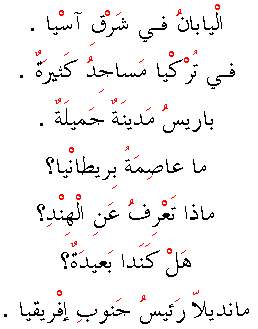 الْيابانُ في شَرْقِ آسْيا .
في تُرْكْيا مَساجِدُ كَثيرَةٌ .
باريسُ مَدينَةٌ جَميلَةٌ .
ما عاصِمَةُ بِريطانْيا؟
ماذا تَعْرِفُ عَنِ الْهِنْدِ؟
هَلْ كَنَدا بَعيدَةٌ؟
مانديلاّ رَئيسُ جَنوبِ إفْريقيا .